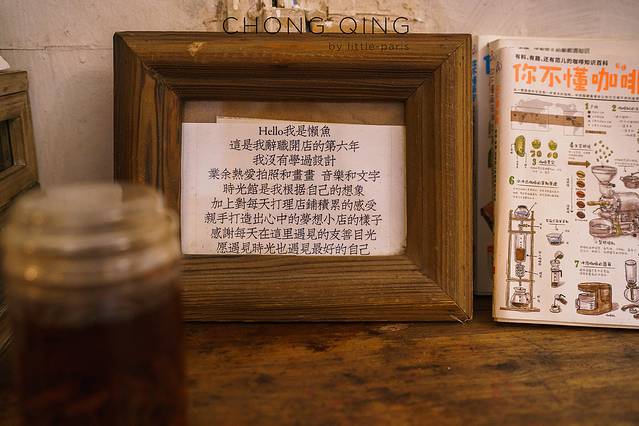 CHONG QING
by little-paris
Hello我是懶魚
這是我辭職開店的第六年
我沒有學過設計
業余熱愛拍照和畫畫 音樂和文字
時光館是我根据自己的想象
加上對每天打理店鋪積累的感受
親手打造出心中的夢想小店的樣子
感謝每天在這里遇見的友善目光
愿遇見時光也遇見最好的自己
有料、有趣、还有范儿的咖啡知识百科
你不懂咖啡